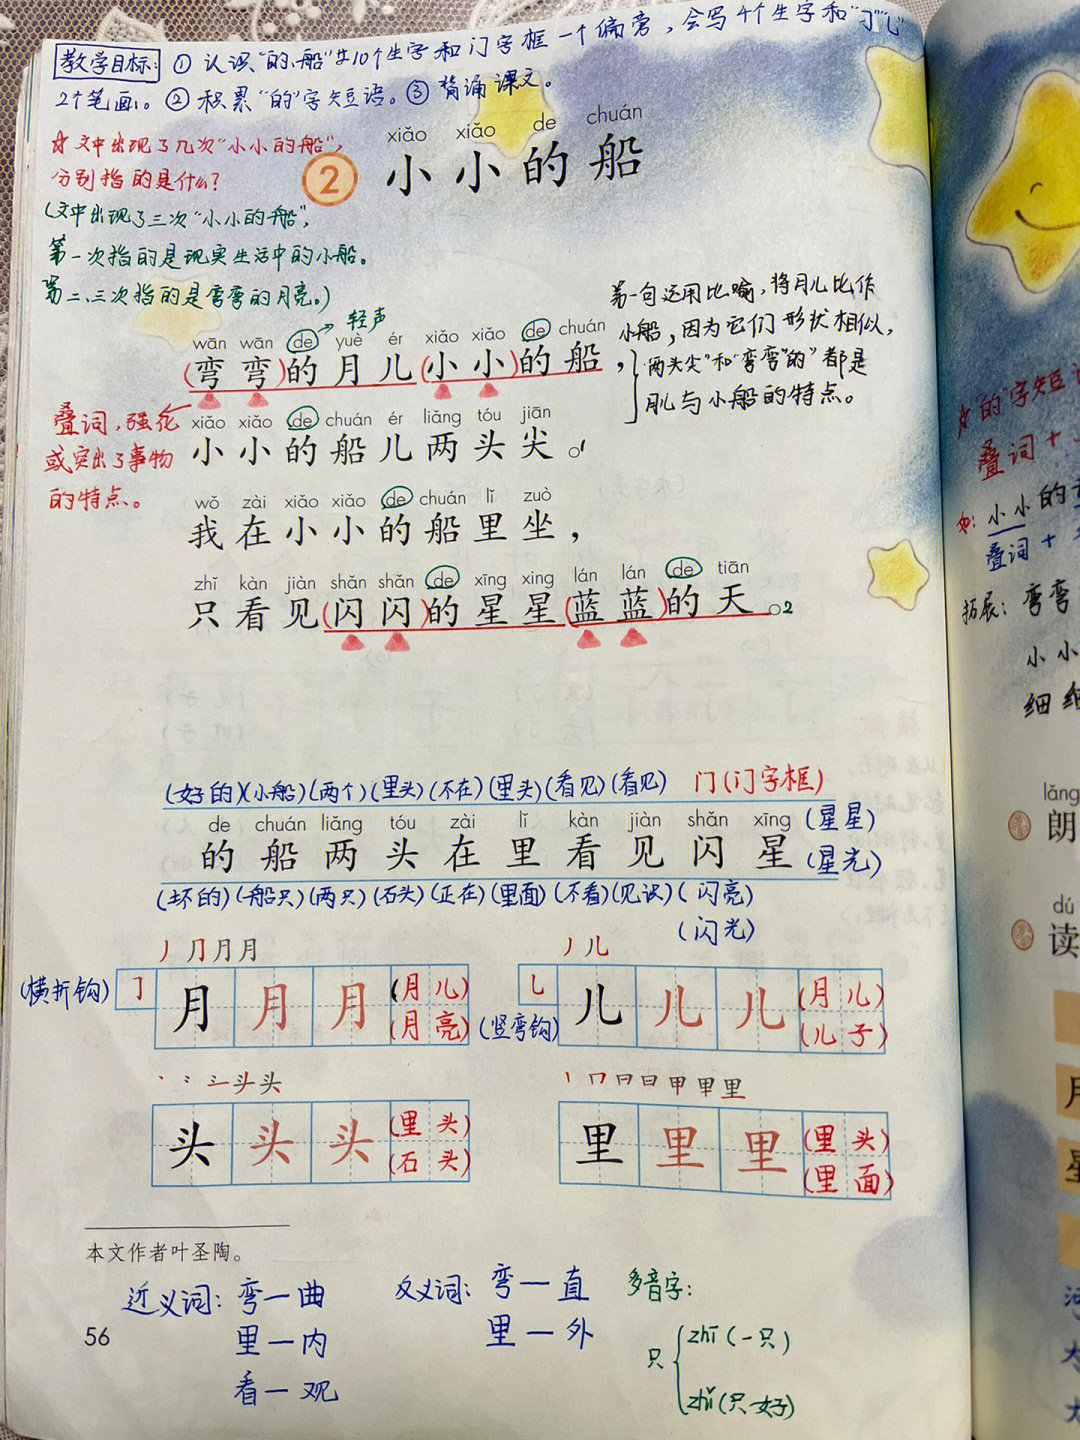 教学目标: ① 认识"的、船"等10个生字和门字框一个偏旁，会写4个生字和"㇆""乚"
2个笔画。② 积累"的"字短语。③ 背诵课文。
☆文中出现了几次"小小的船"，
分别指的是什么?
(文中出现了三次"小小的船"，
第一次指的是现实生活中的小船。
第二、三次指的是弯弯的月亮。)
xiǎo xiǎo de chuán
2 小小的船
第一句运用比喻，将月儿比作
小船，因为它们形状相似，
"两头尖"和"弯弯"的"都是
月儿与小船的特点。
轻声
wān wān de yuè ér xiǎo xiǎo de chuán
(弯弯)的月儿(小小)的船，
叠词，强化
或突出了事物
的特点。
xiǎo xiǎo de chuán ér liǎng tóu jiān
小小的船儿两头尖。1
wǒ zài xiǎo xiǎo de chuán lǐ zuò
我在小小的船里坐，
zhǐ kàn jiàn shǎn shǎn de xīng xing lán lán de tiān
只看见(闪闪)的星星(蓝蓝)的天。2
(好的)(小船)(两个)(里头)(不在)(里头)(看见)(看见) 门(门字框)
de chuán liǎng tóu zài lǐ kàn jiàn shǎn xīng (星星)
的船两头在里看见闪星 (星光)
(坏的)(船只)(两只)(石头)(正在)(里面)(不看)(见识)(闪亮)
(闪光)
丿 ⺆ 月 月
(横折钩) ㇆ 月 月 月 (月儿)
(月亮)
丿 儿
乚 儿 儿 儿 (月儿)
(竖弯钩) (儿子)
头 头
头 头 头 (里头)
(石头)
丨 冂 日 日 甲 里 里
里 里 里 (里头)
(里面)
本文作者叶圣陶。
近义词: 弯—曲
里—内
看—观
反义词: 弯—直
里—外
多音字:
只 zhī (一只)
zhǐ (只好)
56
☆"的"字短
叠词+
如: 小小的
叠词+
拓展: 弯弯
小小
细细
lǎng
朗
dú
读
月
星